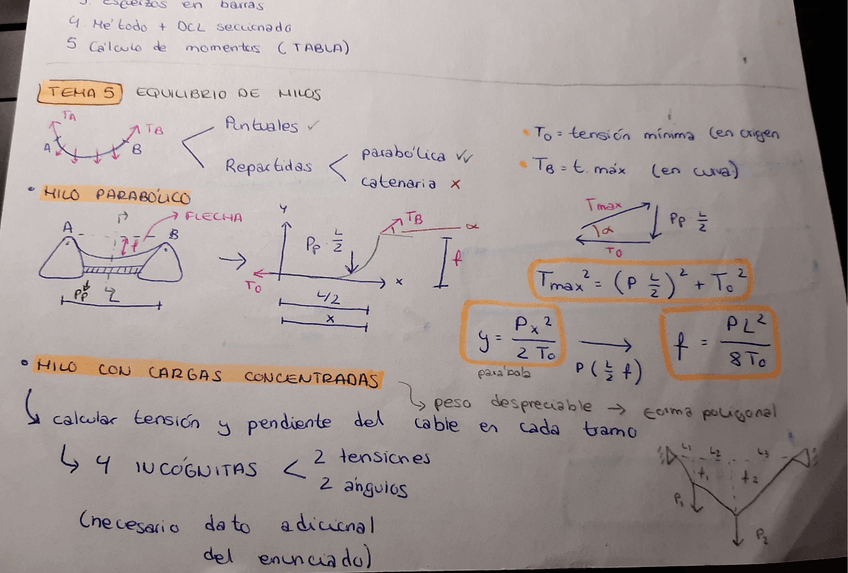 esfuerzos en barras
4 Método + DCL seccionado
5 Cálculo de momentos (TABLA)
TEMA 5 EQUILIBRIO DE HILOS
TA
TB
A
B
Puntuales ✓
Repartidas
parabólica ✓✓
catenaria x
• T₀ = tensión mínima (en origen
• TB = t. máx (en curva)
• HILO PARABÓLICO
A
B
FLECHA
f
Pp
L/2
y
Pp · L/2
TB
α
f
T₀
x
L/2
x
Tmax
α
T₀
Pp L/2
Tmax² = (P L/2)² + T₀²
y = Px²/2T₀
parábola
P(L/2 f)
f = PL²/8T₀
• HILO CON CARGAS CONCENTRADAS
↳ peso despreciable → forma poligonal
↳ calcular tensión y pendiente del cable en cada tramo
↳ 4 INCÓGNITAS < 2 tensiones
2 ángulos
(necesario dato adicional
del enunciado)
L1 L2 L3
f1
f2
P1
P2